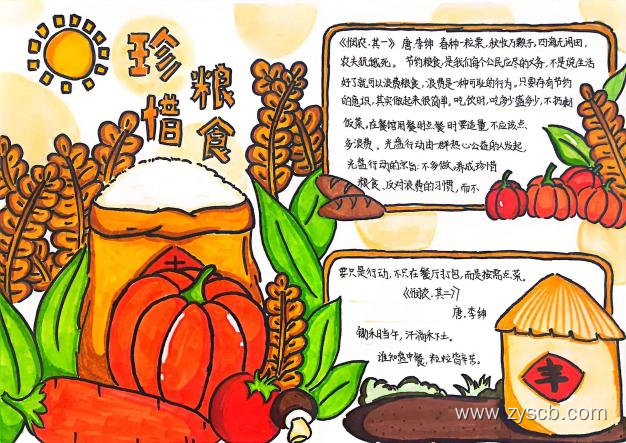 珍惜
粮食
《悯农·其一》 唐·李绅 春种一粒粟,秋收万颗子。四海无闲田,
农夫犹饿死。 节约粮食,是我们每个公民应尽的义务,不是说生活
好了就可以浪费粮食,浪费是一种可耻的行为。只要存有节约
的意识,其实做起来很简单。吃饮时,吃多少盛多少,不扔剩
饭菜。在餐馆用餐时点餐时要适量,不应该点
多浪费。光盘行动由一群热心公益的人发起,
光盘行动的宗旨:不多做,养成珍惜
粮食,反对浪费的习惯,而不
要只是行动,不只在餐厅打包,而是按需点菜。
《悯农·其二》
唐·李绅
锄禾日当午,汗滴禾下土。
谁知盘中餐,粒粒皆辛苦。
丰
www.zyscb.com